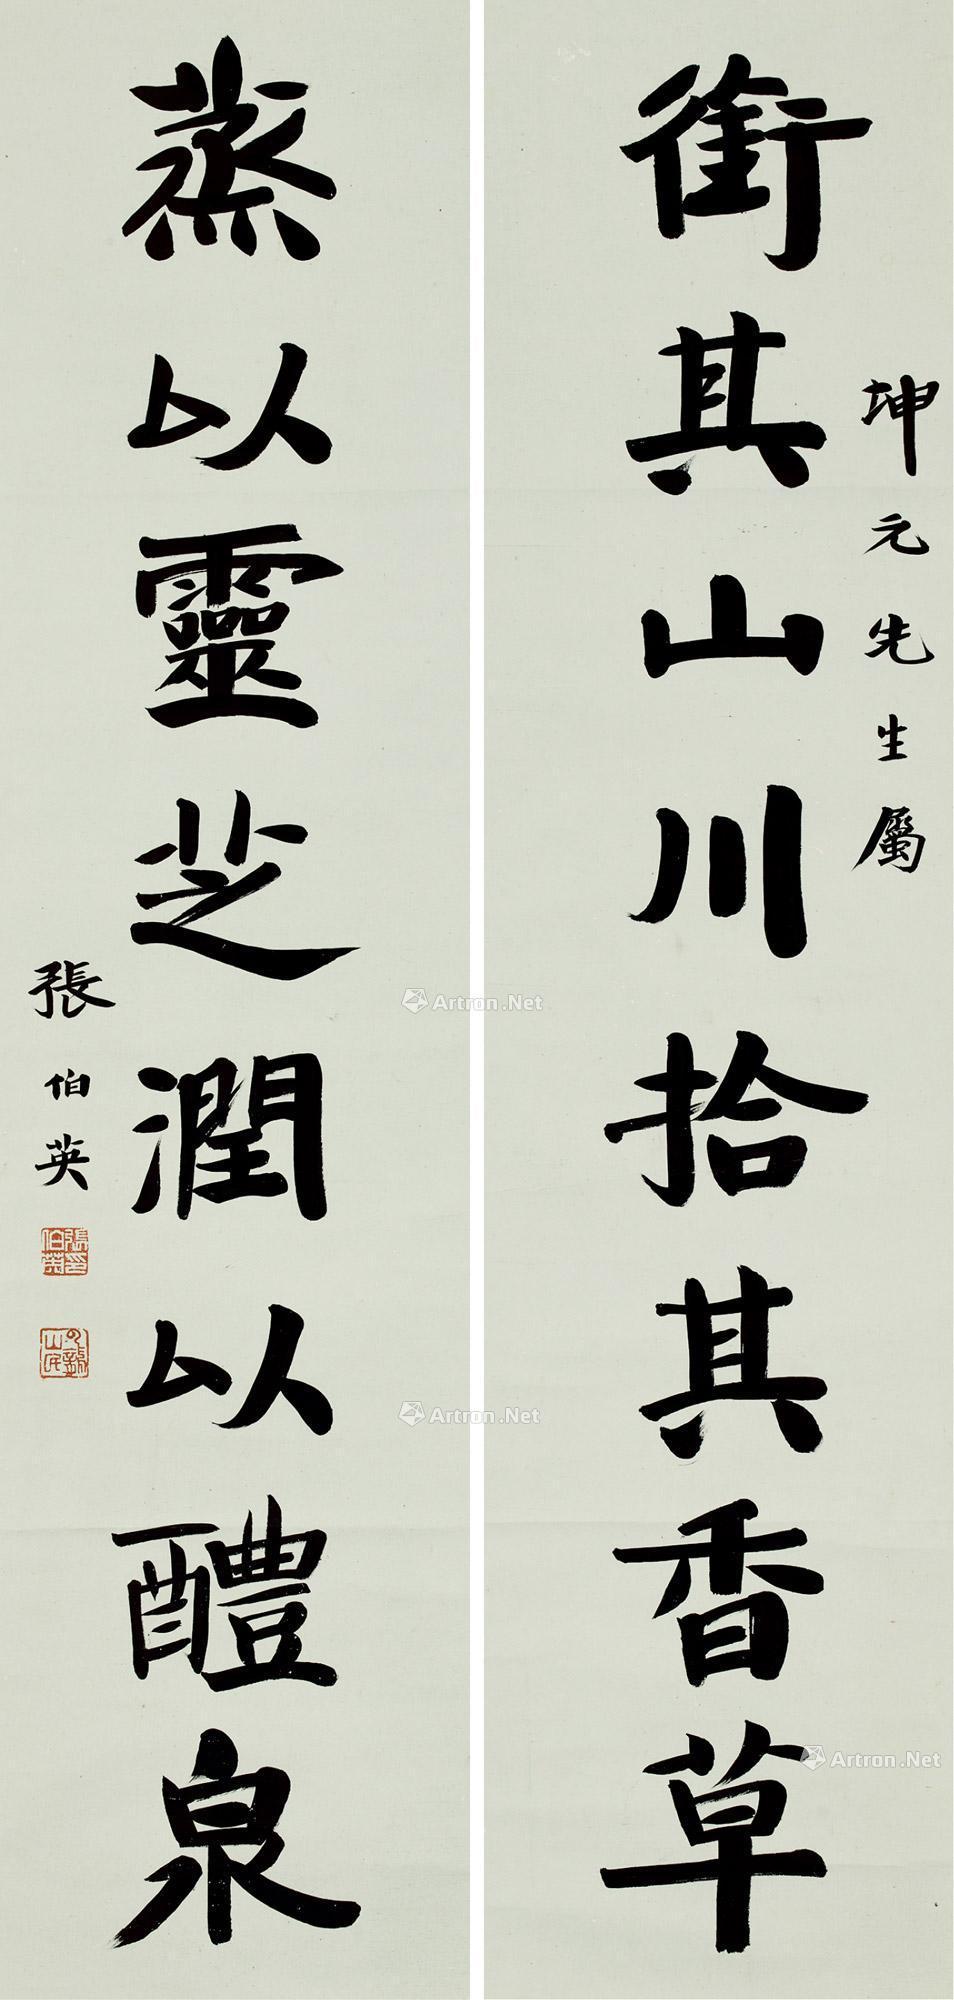 銜其山川拾其香草
坤元先生屬
蒸以靈芝潤以醴泉
張伯英
張伯英印
Artron.Net
Artron.Net
Artron.Net